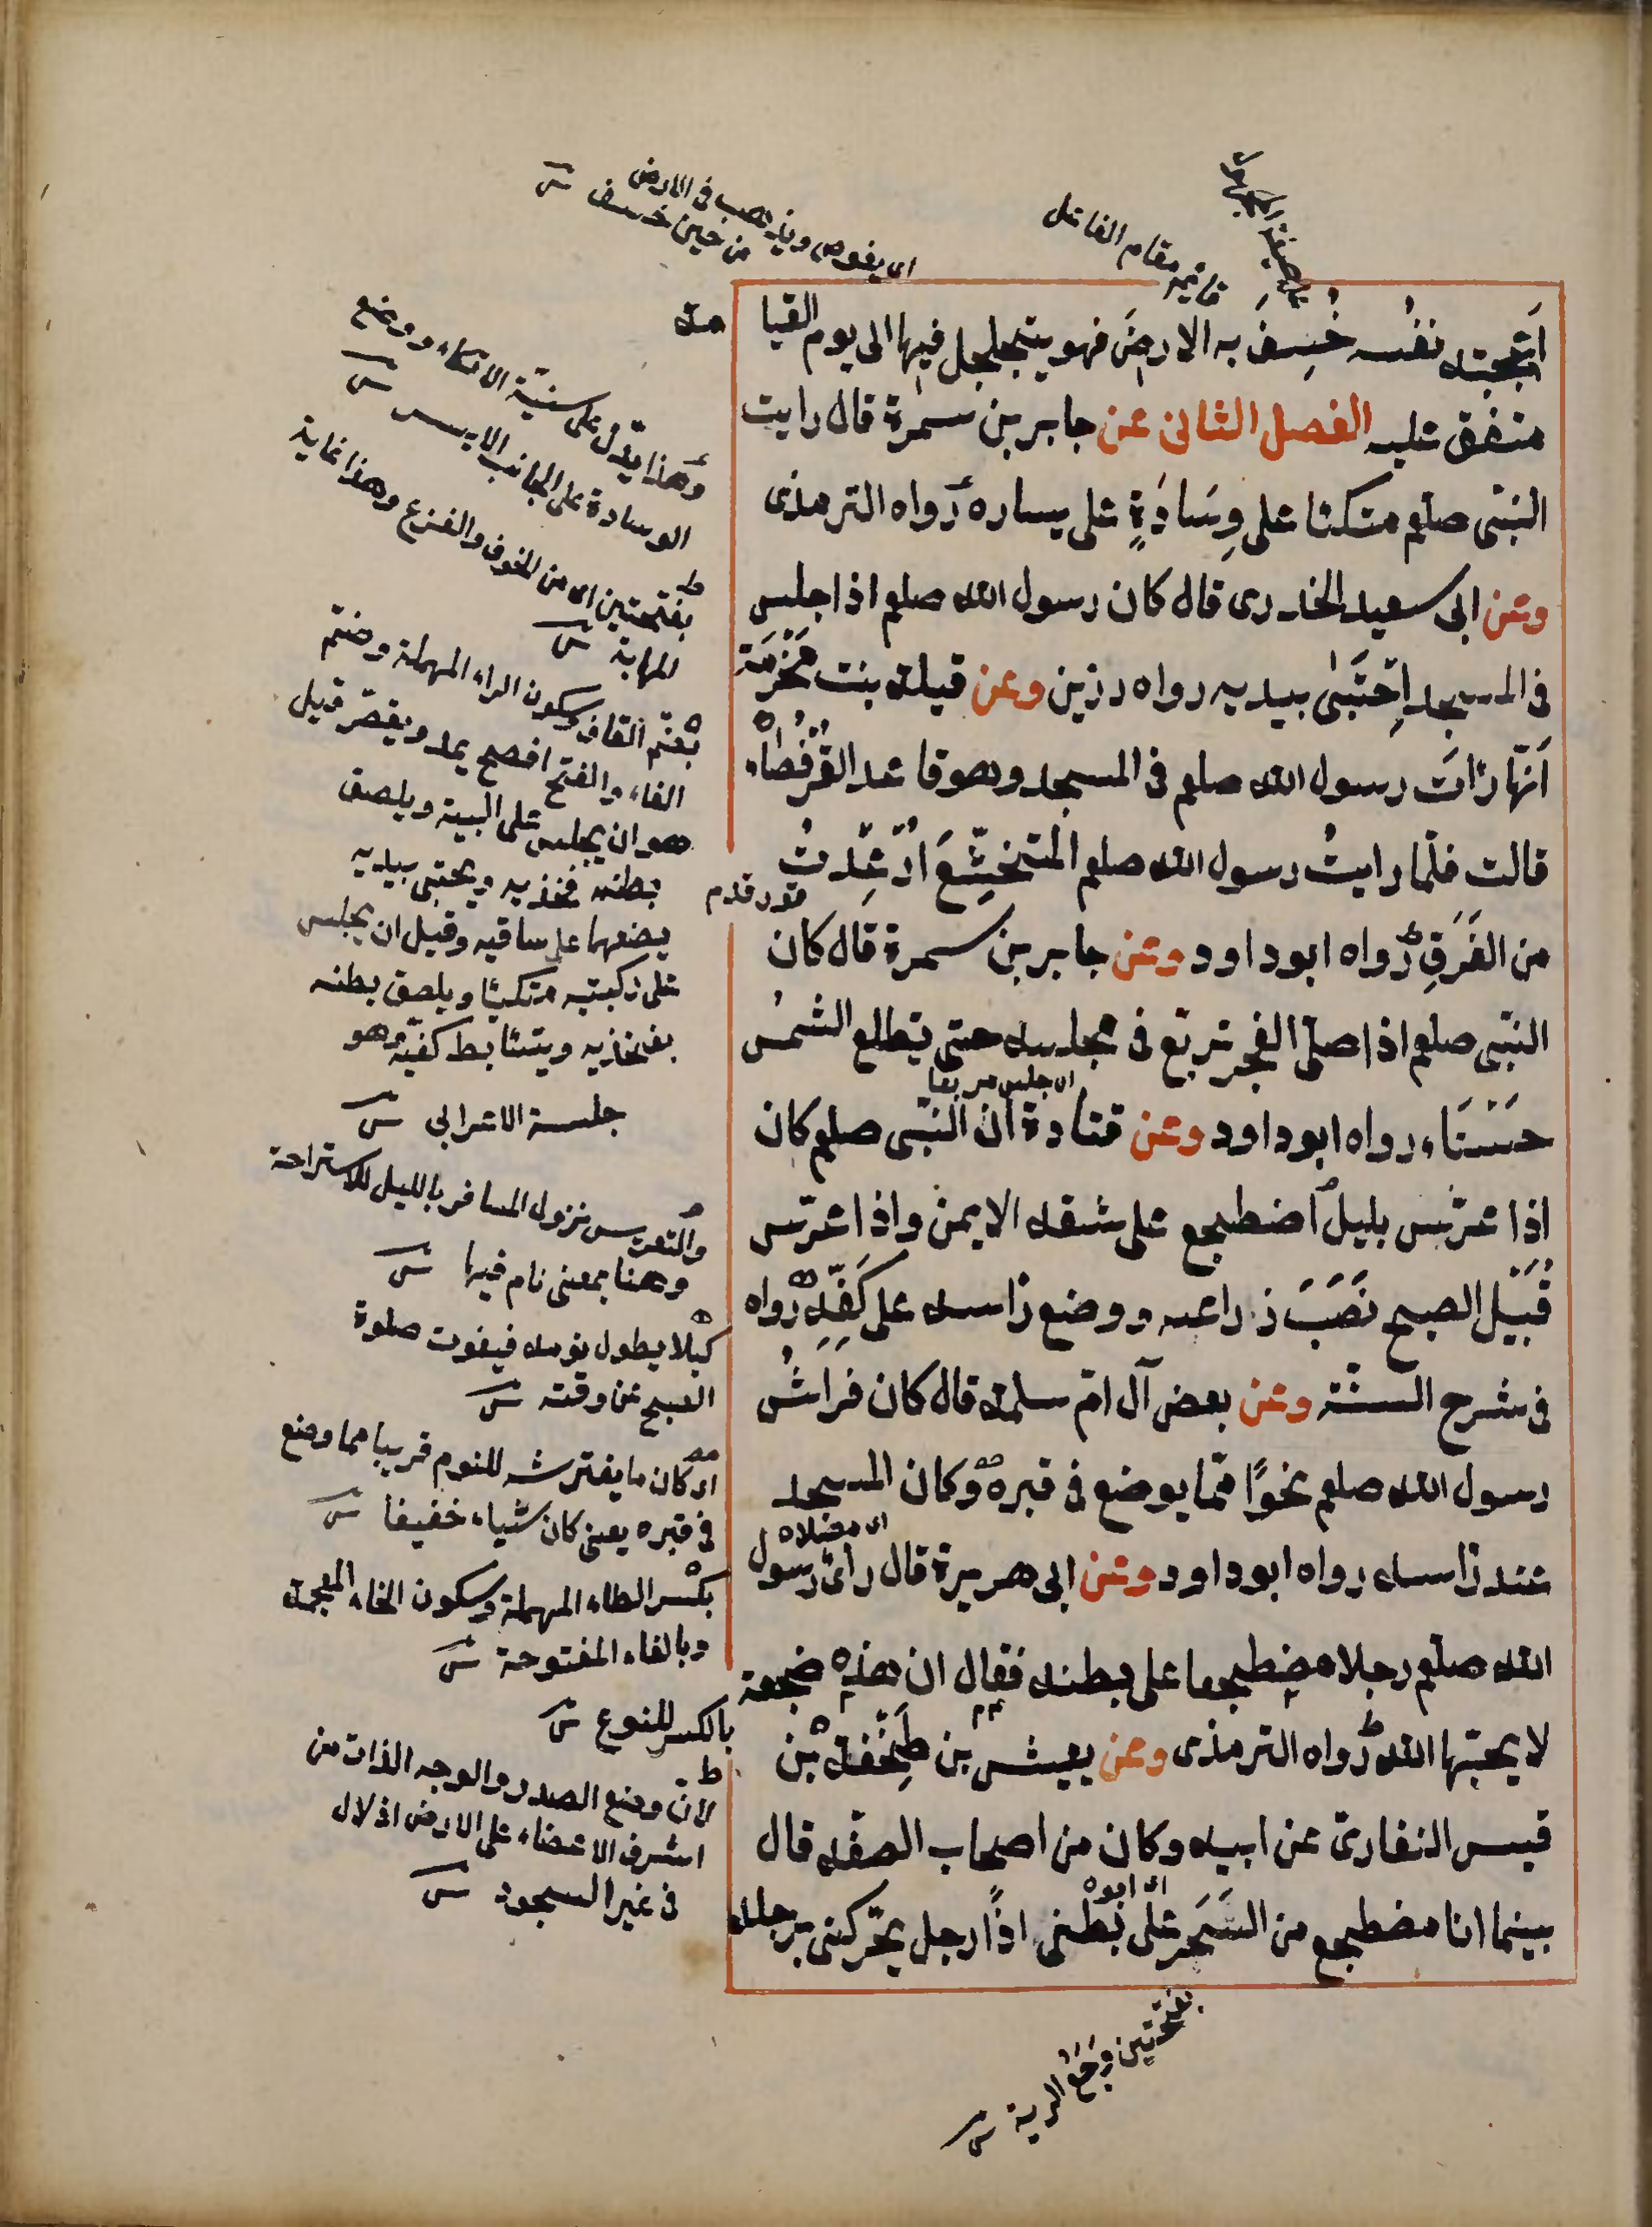 على صيغة المجهول
قائم مقام الفاعل
اى يغوص ويذهب فى الارض
من حين خسف ش
اعجبته نفسُه خُسِفَ به الارضَ فهو يتجلجل فيها الى يوم القيا
مة
متفق عليه الفصل الثانى عن جابر بن سمرة قال رايت
النبّى صلعم متكئا على وِسَادَةٍ على يساره رواه الترمذى
وعن ابى سعيد الخدرى قال كان رسول الله صلعم اذا جلس
فى المسجد اِحْتَبٰى بيديه رواه رزين وعن قيلة بنت مَخْرَمَة
اَنّها رَاَت رسول الله صلعم فى المسجد وهو قاعد القُرْفُصَاء
قالت فلّما رايتُ رسول الله صلعم المتخشِّعَ اُرْعِدتُ
من الفَرَقِ رواه ابو داود وعن جابر بن سمرة قال كان
النبّى صلعم اذا صلّى الفجر تربّع فى مجلسه حتى تطلع الشمسُ
اى جلس مربعا
حَسَنَاء رواه ابو داود وعن قتادة ان النبّى صلعم كان
اذا عرّس بليل اضطجع على شقه الايمن واذا عرّس
قُبَيْل الصبح نَصَبَ ذراعه ووضع رَاسه على كَفِّهِ رواه
فى شرح السنّة وعن بعض آل امّ سلمة قال كان فراشُ
رسول الله صلعم نحوًا ممّا يوضع فى قبره وكان المسجد
اى مصلاه
عند رَاسه رواه ابو داود وعن ابى هريرة قال راى رسول
الله صلعم رجلا مضطجعا على بطنه فقال ان هذه ضجعة
لا يحبّها الله رواه الترمذى وعن يعيش بن طِخْفَة بن
قيس الغفارىّ عن ابيه وكان من اصحاب الصفّه قال
اى ابوه
بينما انا مضطجع من السَّحَر على بطنى اذًا رجل يحّركنى برجله
وهذا يدّل على سنيّة الاتكاء ووضع
الوسادة على الجانب الايسر ش
بفتحتين اى من الخوف والفزع وهذا غاية
المهابة ش
بضم القاف وسكون الراء المهملة وضم
الفاء والفتح افصح يمد ويقصر قيل
هو ان يجلس على اليية ويلصق
بطنه فخذيه ويحتبى بيديه
يضعهما على ساقيه وقيل ان يجلس
على ركبتيه متكيئا ويلصق بطنه
بفخذيه ويتئابط كفيه وهو
جلسة الاعرابى ش
والتعريس نزول المسافر بالليل للاستراحة
وهنا بمعنى نام فيها ش
كيلا يطول نومه فيفوت صلوة
الصبح عن وقته ش
اى كان ما يفترشه للنوم قريبا مما وضع
فى قبره يعنى كان شياء خفيفا ش
بكسر الطاء المهملة وسكون الخاء المعجمة
وبالفاء المفتوحة ش
بالكسر للنوع ش
لان وضع الصدر والوجه الذات من
اشرف الاعضاء على الارض اذلال
فى غير السجود ش
بفتحتين وجع الرية ش